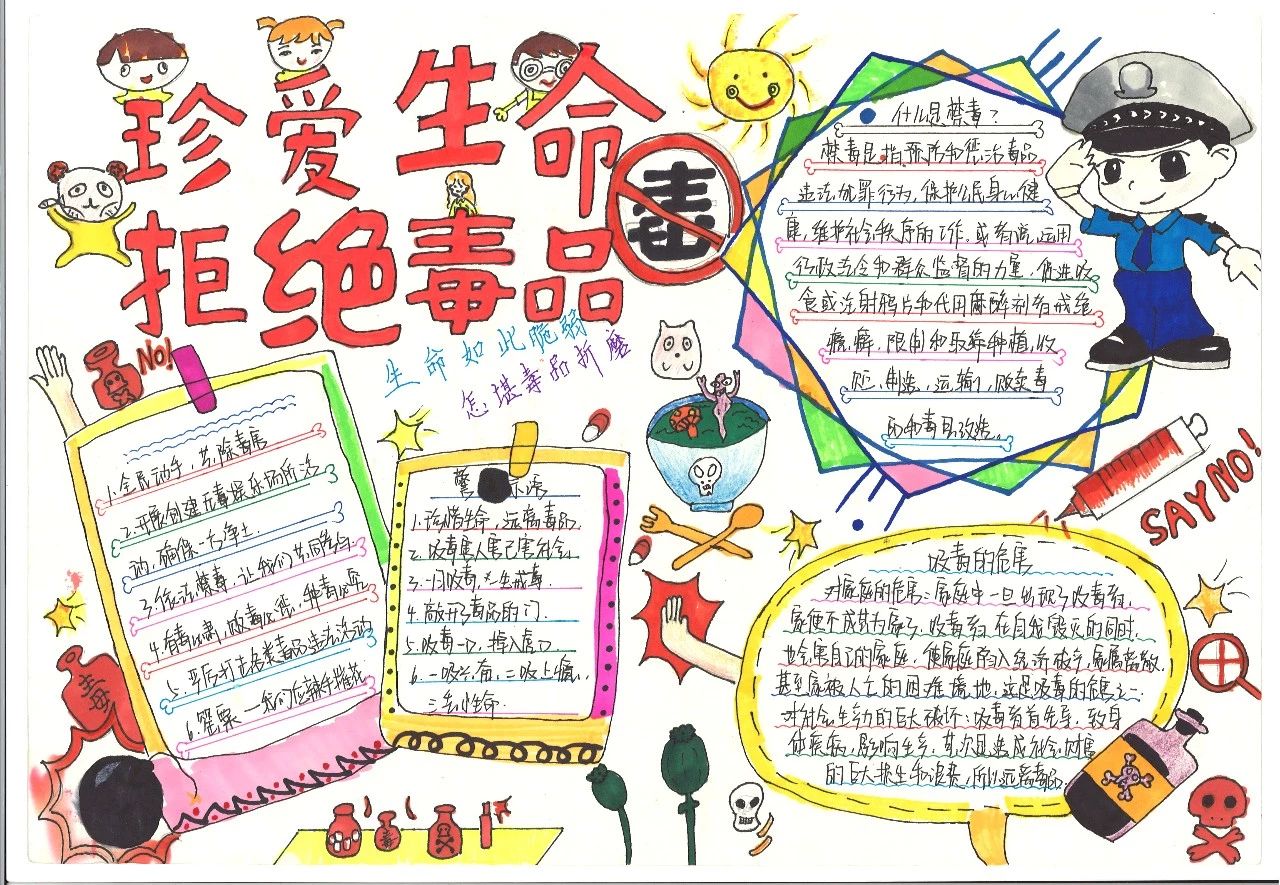 珍爱生命
拒绝毒品
毒
生命如此脆弱
怎堪毒品折磨
NO!
1.全民动手,共除毒害
2.开展创建无毒娱乐场所活
动,确保一方净土
3.依法禁毒,让我们共同参与
4.有毒必肃,贩毒必惩,种毒必究
5.严厉打击各类毒品违法活动
6.罂粟
毒
警
1.珍惜生命,远离毒品
2.吸毒害人害己害社会
3.一日吸毒,一生戒毒
4.敞开了毒品的门
5.吸毒一口,掉入虎口
6.一吸兴奋,二吸上瘾,
三吸性命
什么是禁毒?
禁毒是指预防和惩治毒品
违法犯罪行为,保护公民身心健
康,维护社会秩序的工作。或者说,运用
行政法令和群众监督的力量,促进吸
食或注射鸦片和代用麻醉剂者戒绝
瘾癖,限制和取缔种植,收
贮,制造,运输,贩卖毒
SAY NO!
吸毒的危害
对家庭的危害:家庭中一旦出现了吸毒者,
家便不成其为家了,吸毒者在自我毁灭的同时,
也会害自己的家庭,使家庭陷入经济破产,家属离散,
甚至家破人亡的困难境地,这是吸毒的危害之二
对社会生产力的巨大破坏:吸毒者首先导致身
体疾病,影响生产,其次是造成社会财富
的巨大损失和浪费,所以远离毒品
毒